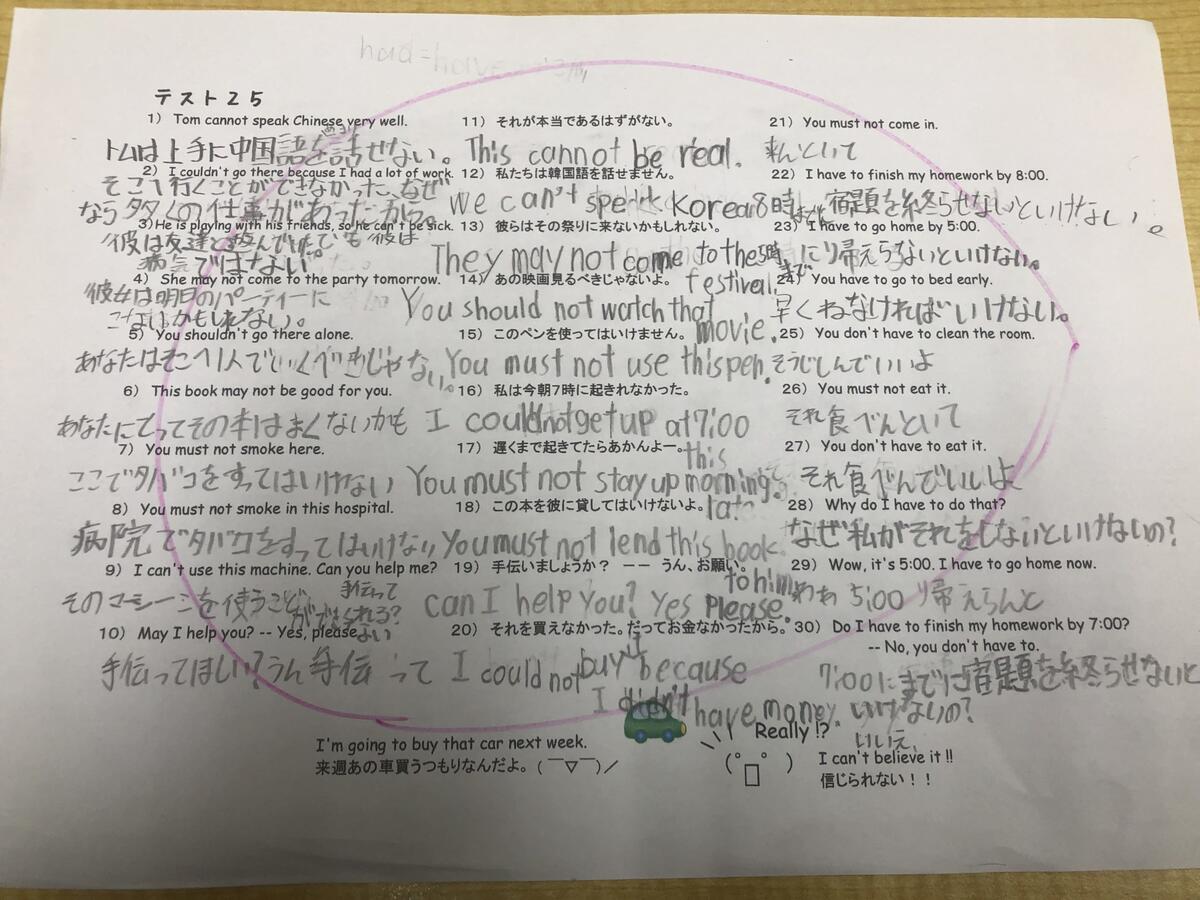 had=have
テスト２５
1） Tom cannot speak Chinese very well.
トムは上手に中国語を話せない。
2） I couldn't go there because I had a lot of work.
そこへ行くことができなかった、なぜ
なら多くの仕事があったから。
3） He is playing with his friends, so he can't be sick.
彼は友達と遊んでいた でも 彼は
病気ではない。
4） She may not come to the party tomorrow.
彼女は明日のパーティーに
こないかもしれない。
5） You shouldn't go there alone.
あなたはそこへ1人でいくべきじゃない。
6） This book may not be good for you.
あなたにとってその本はよくないかも
7） You must not smoke here.
ここでタバコをすってはいけない
8） You must not smoke in this hospital.
病院でタバコをすってはいけない
9） I can't use this machine. Can you help me?
そのマシーンを使うこと
ができない
手伝って
られる？
10） May I help you? -- Yes, please.
手伝ってほしい？うん 手伝って
11） それが本当であるはずがない。
This cannot be real.
12） 私たちは韓国語を話せません。
we can't speak Korean
13） 彼らはその祭りに来ないかもしれない。
They may not come to the
festival.
14） あの映画見るべきじゃないよ。
You should not watch that
movie.
15） このペンを使ってはいけません。
You must not use this pen.
16） 私は今朝7時に起きれなかった。
I could not get up at 7:00
this
morning.
17） 遅くまで起きてたらあかんよー。
You must not stay up
late
18） この本を彼に貸してはいけないよ。
You must not lend this book
to him.
19） 手伝いましょうか？ －－ うん、お願い。
can I help you? Yes please.
20） それを買えなかった。だってお金なかったから。
I could not buy it because
I didn't have money.
21） You must not come in.
来んといて
22） I have to finish my homework by 8:00.
8時までに宿題を終らせないといけない。
23） I have to go home by 5:00.
5時までに帰えらないといけない。
24） You have to go to bed early.
早くねなければいけない。
25） You don't have to clean the room.
そうじしんでいいよ
26） You must not eat it.
それ食べんといて
27） You don't have to eat it.
それ食べんでいいよ
28） Why do I have to do that?
なぜ私がそれをしないといけないの？
29） Wow, it's 5:00. I have to go home now.
わぁ 5:00 帰えらんと
30） Do I have to finish my homework by 7:00?
-- No, you don't have to.
7:00にまでに宿題を終らせないと
いけないの？
いいえ、
I'm going to buy that car next week.
来週あの車買うつもりなんだよ。(￣▽￣)／
Really !?
(°□°)
I can't believe it !!
信じられない！！